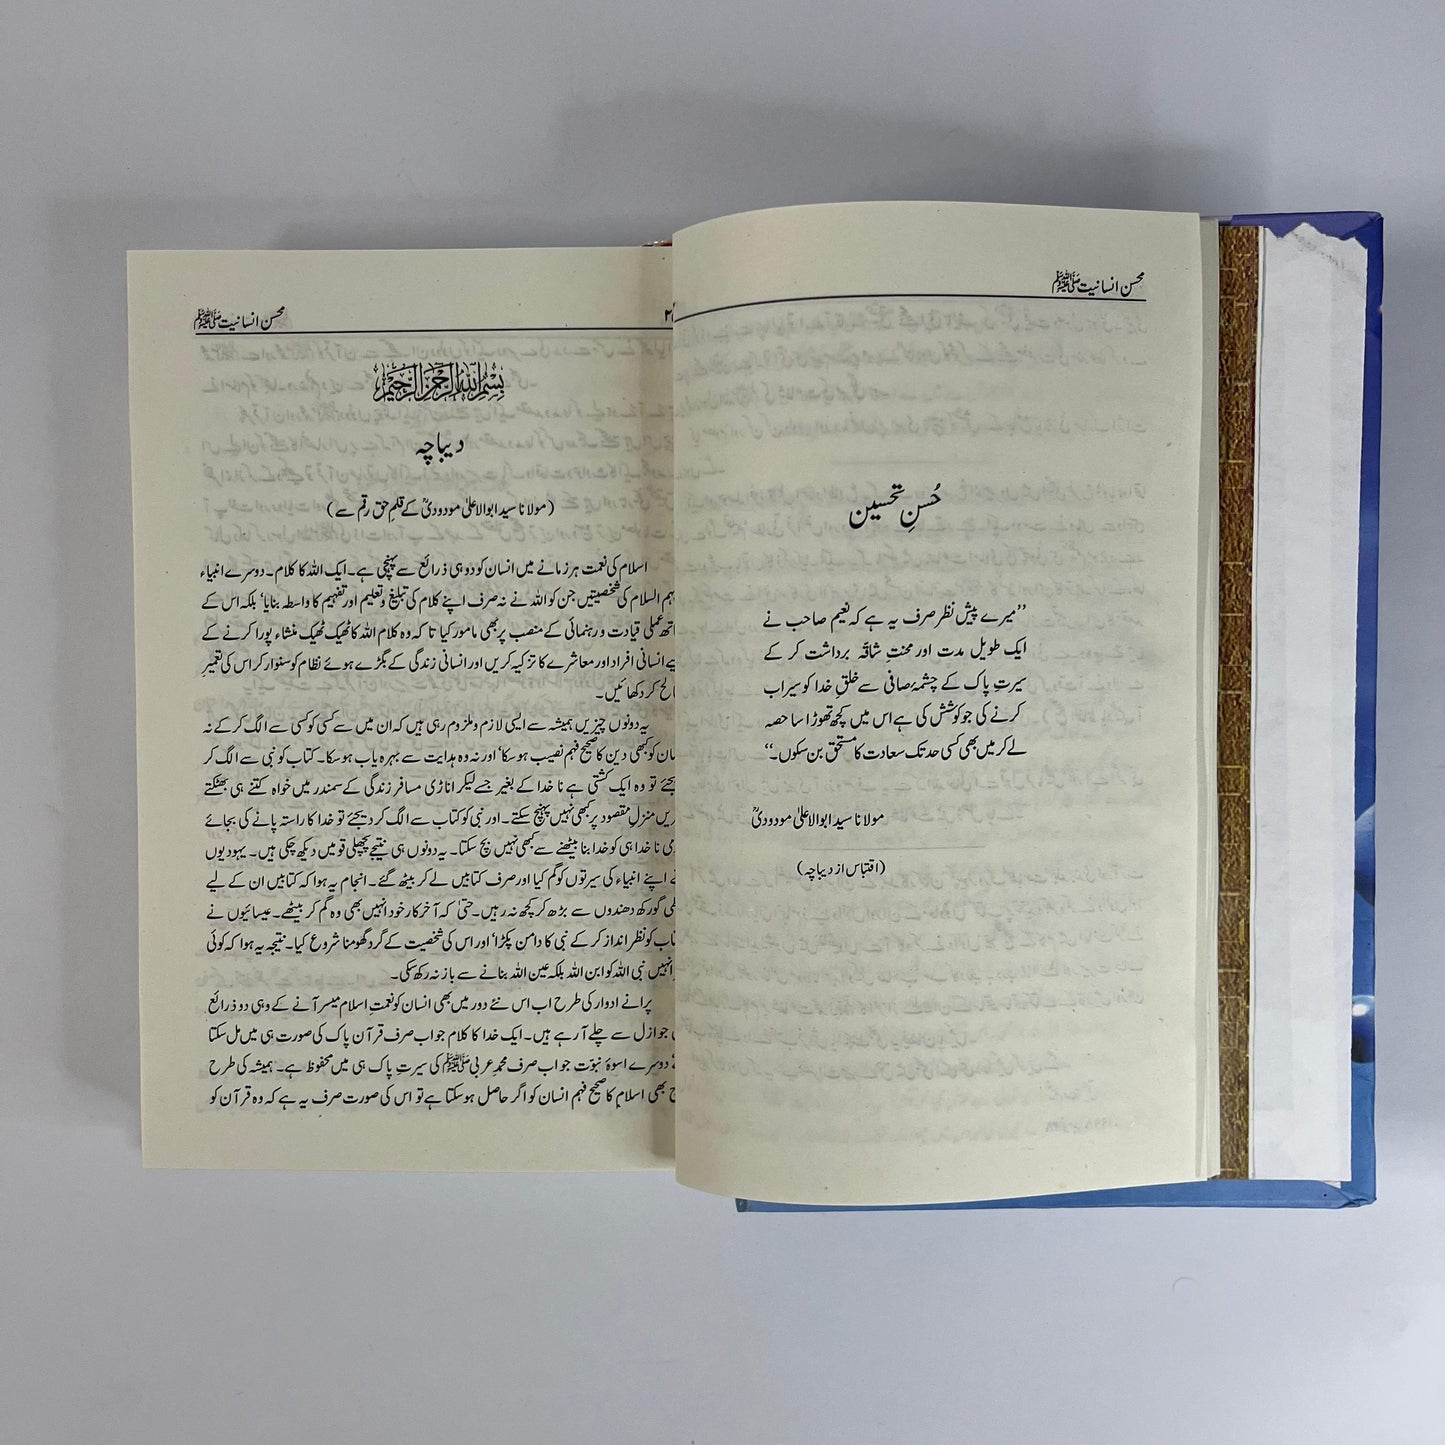 محسن انسانیت ﷺ
حُسنِ تحسین
”میرے پیش نظر صرف یہ ہے کہ نعیم صاحب نے
ایک طویل مدت اور محنتِ شاقّہ برداشت کر کے
سیرتِ پاک کے چشمۂ صافی سے خلقِ خدا کو سیراب
کرنے کی جو کوشش کی ہے اس میں کچھ تھوڑا سا حصہ
لے کر میں بھی کسی حد تک سعادت کا مستحق بن سکوں۔“
مولانا سید ابوالاعلیٰ مودودیؒ
(اقتباس از دیباچہ)
محسن انسانیت ﷺ
بسم اللہ الرحمن الرحیم
دیباچہ
(مولانا سید ابوالاعلیٰ مودودیؒ کے قلمِ حق رقم سے)
اسلام کی نعمت ہر زمانے میں انسان کو دو ہی ذرائع سے پہنچی ہے۔ ایک اللہ کا کلام۔ دوسرے انبیاء
السلام کی شخصیتیں جن کو اللہ نے نہ صرف اپنے کلام کی تبلیغ و تعلیم اور تفہیم کا واسطہ بنایا‘ بلکہ اس کے
عملی قیادت و رہنمائی کے منصب پر بھی مامور کیا تا کہ وہ کلام اللہ کا ٹھیک ٹھیک منشاء پورا کرنے کے
انسانی افراد اور معاشرے کا تزکیہ کریں اور انسانی زندگی کے بگڑے ہوئے نظام کو سنوار کر اس کی تعمیرِ
کر دکھائیں۔
یہ دونوں چیزیں ہمیشہ سے ایسی لازم و ملزوم رہی ہیں کہ ان میں سے کسی کو کسی سے الگ کر کے نہ
کو کبھی دین کا صحیح فہم نصیب ہو سکا‘ اور نہ وہ ہدایت سے بہرہ یاب ہو سکا۔ کتاب کو نبی سے الگ کر
تو وہ ایک کشتی ہے نا خدا کے بغیر جسے لیکر اناڑی مسافر زندگی کے سمندر میں خواہ کتنے ہی بھٹکتے
منزلِ مقصود پر کبھی نہیں پہنچ سکتے۔ اور نبی کو کتاب سے الگ کر دیجئے تو خدا کا راستہ پانے کی بجائے
نا خدا ہی کو خدا بنا بیٹھنے سے کبھی نہیں بچ سکتا۔ یہ دونوں ہی نتیجے پچھلی قومیں دیکھ چکی ہیں۔ یہودیوں
اپنے انبیاء کی سیرتوں کو گم کیا اور صرف کتابیں لے کر بیٹھ گئے۔ انجام یہ ہوا کہ کتابیں ان کے لیے
گورکھ دھندوں سے بڑھ کر کچھ نہ رہیں۔ حتیٰ کہ آخر کار خود انہیں بھی وہ گم کر بیٹھے۔ عیسائیوں نے
کو نظر انداز کر کے نبی کا دامن پکڑا‘ اور اس کی شخصیت کے گرد گھومنا شروع کیا۔ نتیجہ یہ ہوا کہ کوئی
انہیں نبی اللہ کو ابن اللہ بلکہ عین اللہ بنانے سے باز نہ رکھ سکی۔
پرانے ادوار کی طرح اب اس نئے دور میں بھی انسان کو نعمتِ اسلام میسر آنے کے وہی دو ذرائع
جو ازل سے چلے آ رہے ہیں۔ ایک خدا کا کلام جو اب صرف قرآن پاک کی صورت ہی میں مل سکتا
دوسرے اسوۂ نبوّت جو اب صرف محمد عربی ﷺ کی سیرتِ پاک ہی میں محفوظ ہے۔ ہمیشہ کی طرح
بھی اسلام کا صحیح فہم انسان کو اگر حاصل ہو سکتا ہے تو اس کی صورت صرف یہ ہے کہ وہ قرآن کو